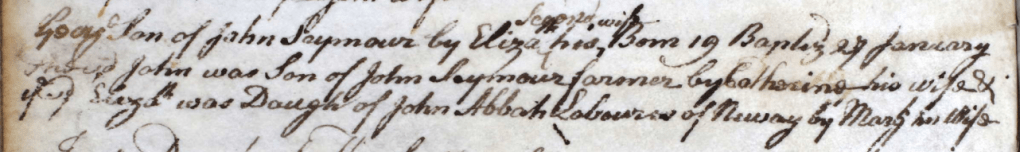 Georg Son of John Seymour by Elizath his Second wife Born 19 Baptiz 27 January
John was Son of John Seymour farmer by Catherine his wife &
ye sd Elizath was Daugh of John Abbath Labourer of Nuway by Mary his Wife